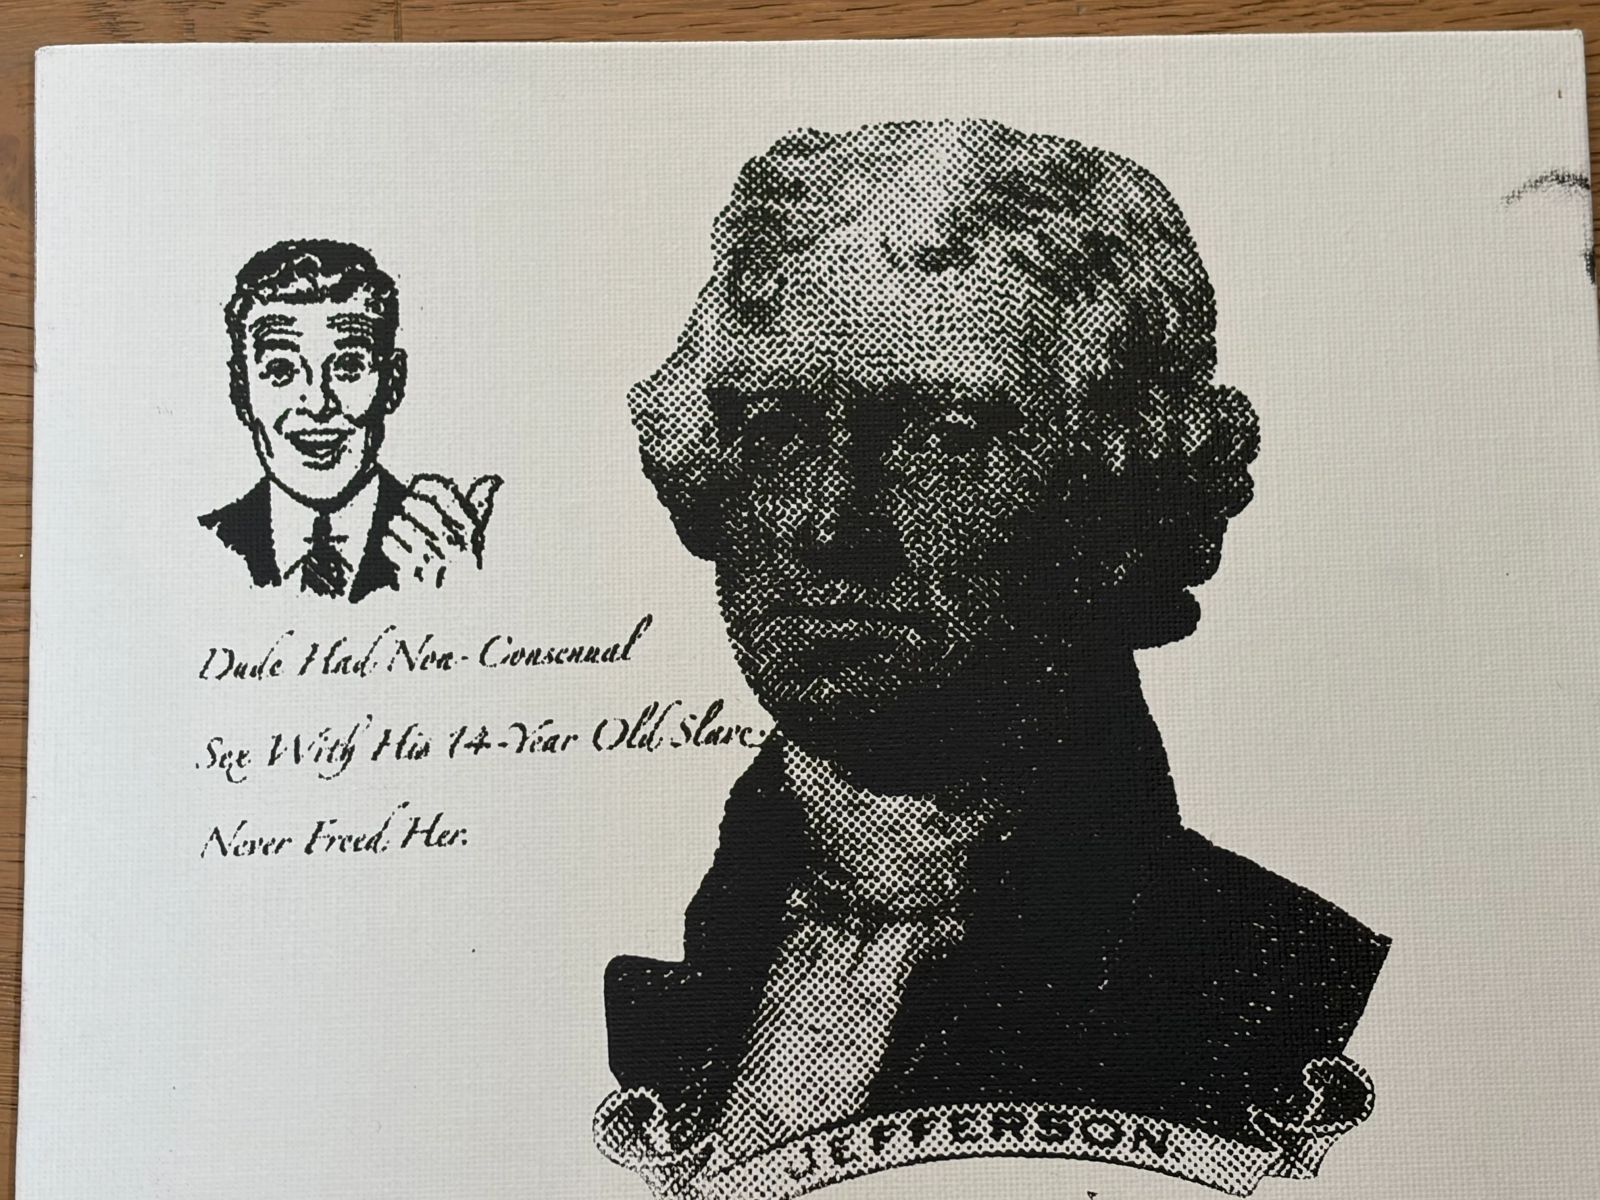 Dude Had Non-Consenual
Sex With His 14-Year Old Slave.
Never Freed Her.
JEFFERSON